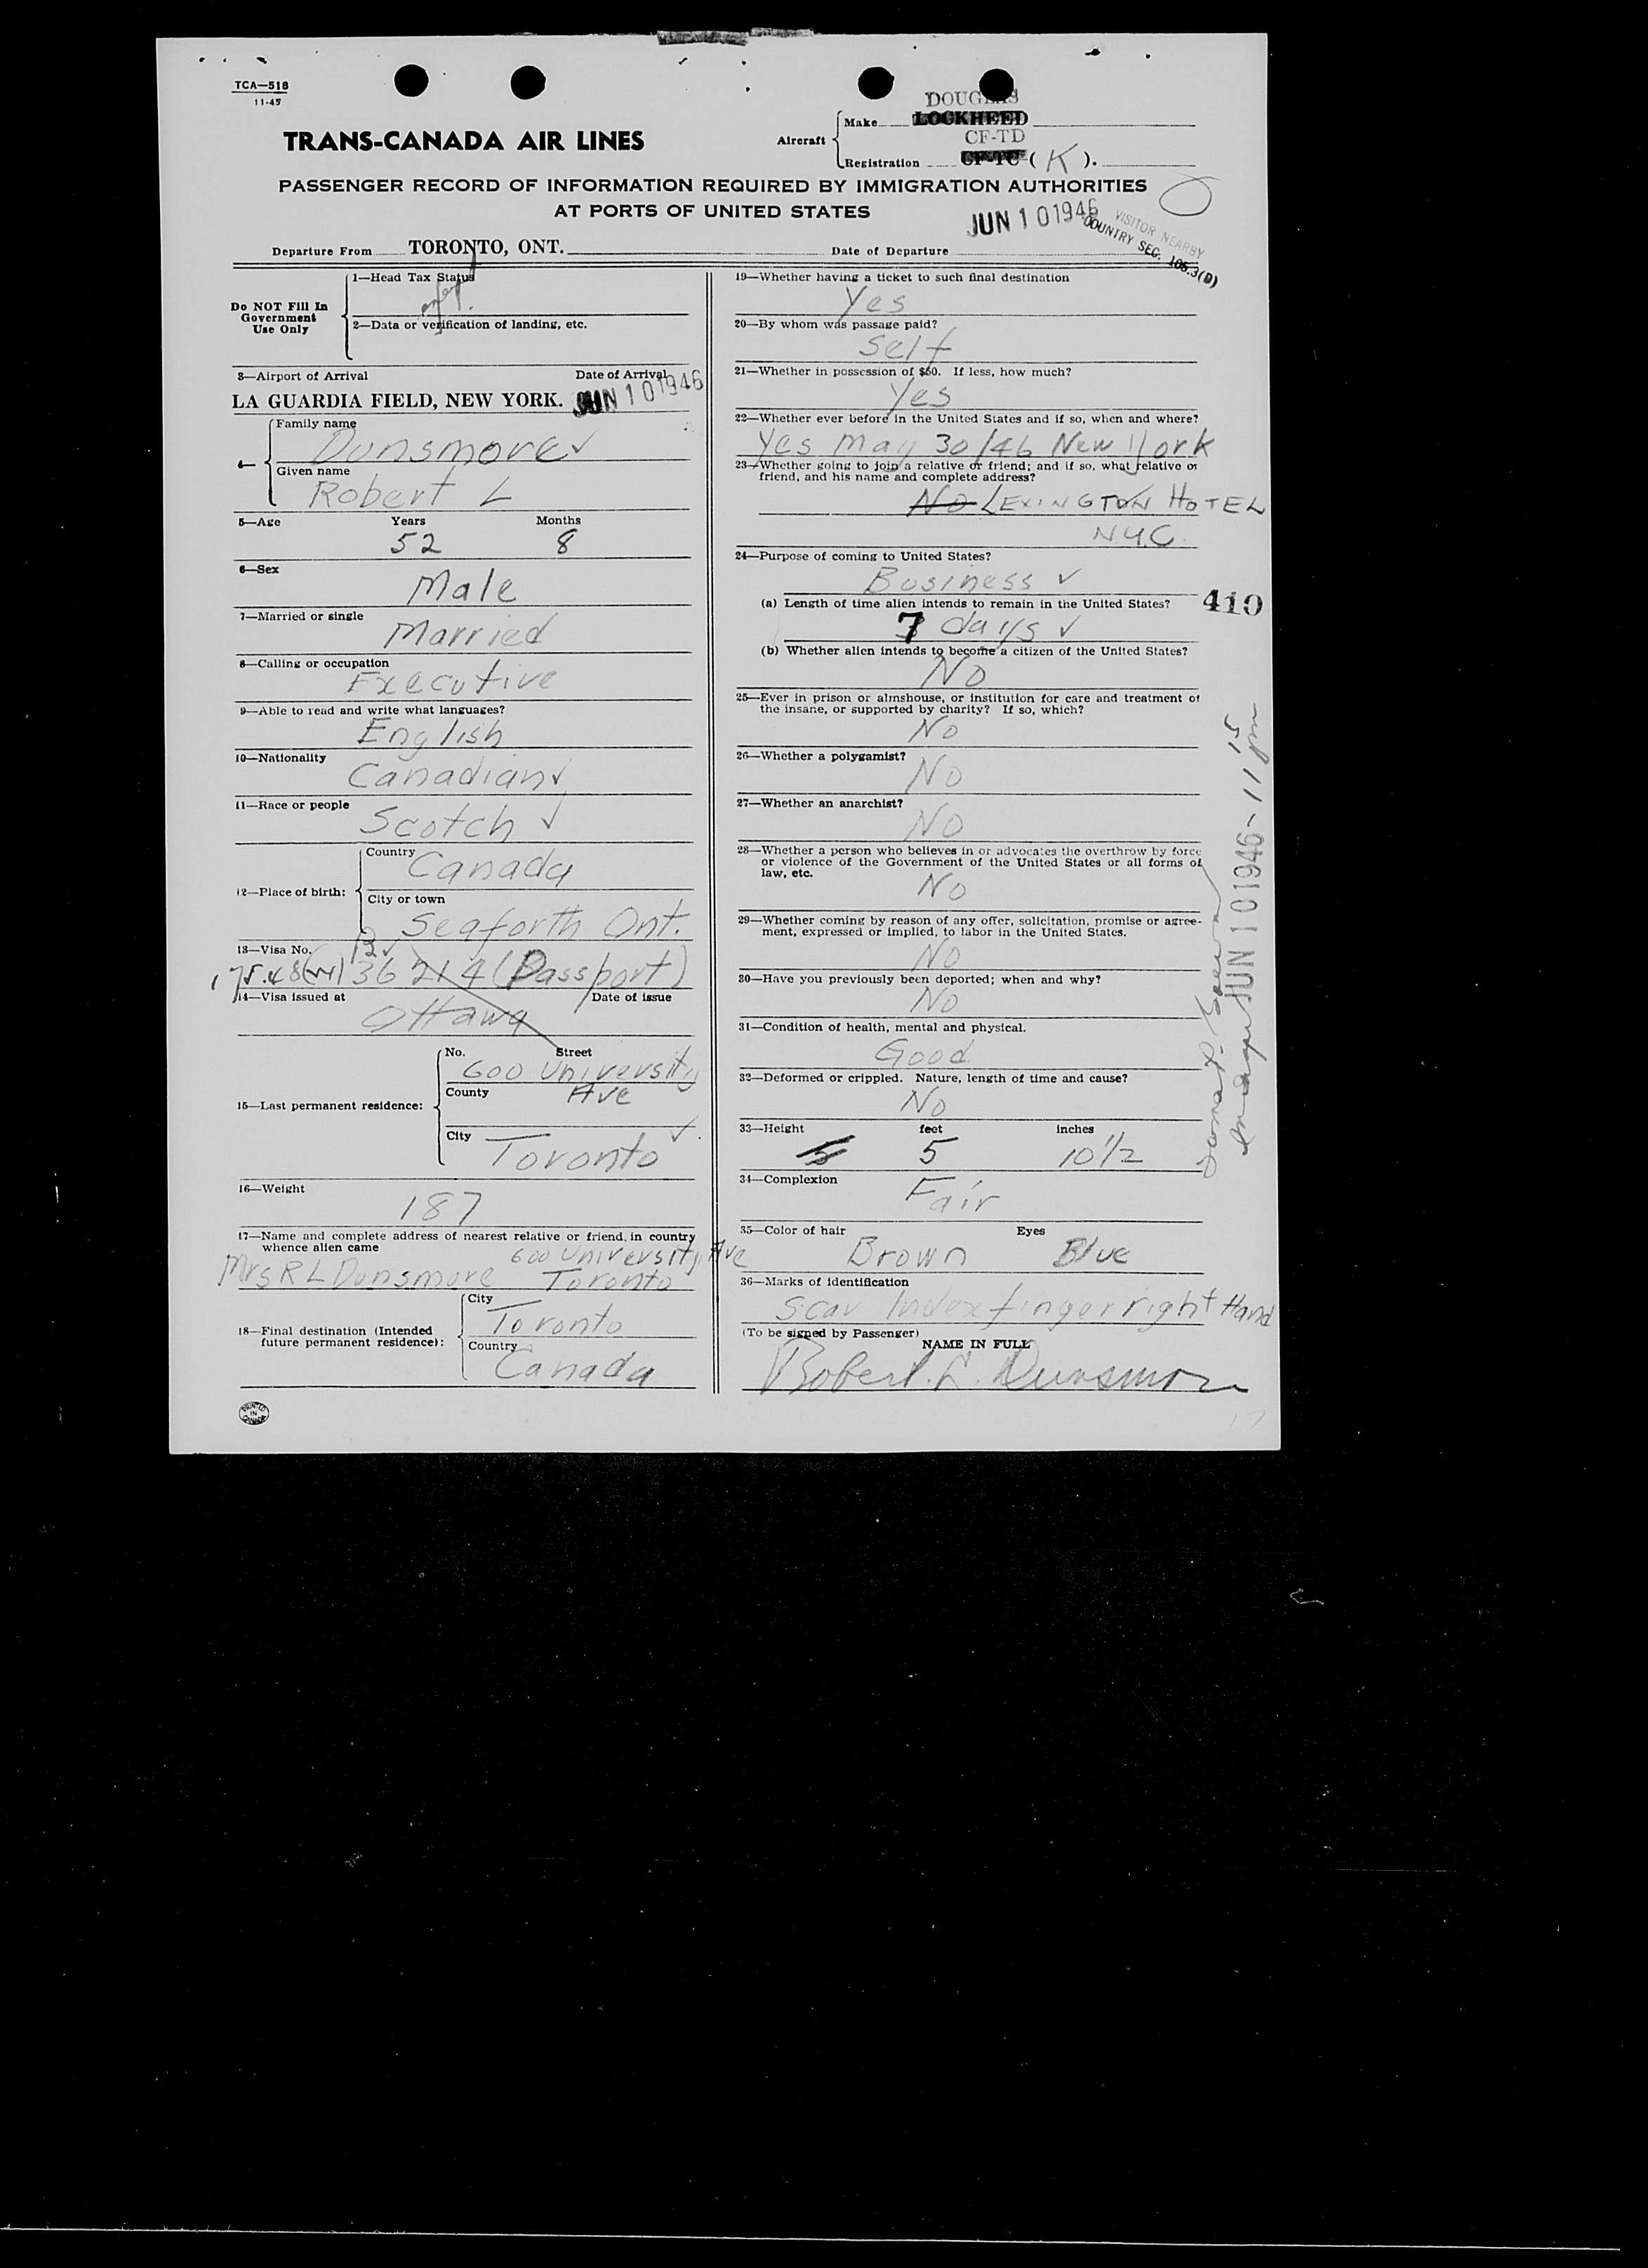 TCA—518
11-45
TRANS-CANADA AIR LINES
Aircraft
Make
DOUGLAS
LOCKHEED
CF-TD
Registration CF-TC ( K ).
PASSENGER RECORD OF INFORMATION REQUIRED BY IMMIGRATION AUTHORITIES
AT PORTS OF UNITED STATES
JUN 10 1946
VISITOR NEARBY
COUNTRY SEC. 105.3(D)
Departure From TORONTO, ONT.
Date of Departure
Do NOT Fill In
Government
Use Only
1—Head Tax Status
2—Data or verification of landing, etc.
3—Airport of Arrival
Date of Arrival
LA GUARDIA FIELD, NEW YORK. JUN 10 1946
4—
Family name
Dunsmore ✓
Given name
Robert L
5—Age Years Months
52 8
6—Sex
Male
7—Married or single
Married
8—Calling or occupation
Executive
9—Able to read and write what languages?
English
10—Nationality
Canadian ✓
11—Race or people
Scotch ✓
12—Place of birth:
Country
Canada
City or town
Seaforth Ont.
13—Visa No.
36214 (Passport)
14—Visa issued at Date of issue
Ottawa
15—Last permanent residence:
No. Street
600 University
County Ave
City
Toronto ✓
16—Weight
187
17—Name and complete address of nearest relative or friend, in country
whence alien came
600 University Ave
Mrs R L Dunsmore Toronto
18—Final destination (Intended
future permanent residence):
City
Toronto
Country
Canada
PRINTED
IN
CANADA
19—Whether having a ticket to such final destination
Yes
20—By whom was passage paid?
Self
21—Whether in possession of $50. If less, how much?
Yes
22—Whether ever before in the United States and if so, when and where?
Yes May 30/46 New York
23—Whether going to join a relative or friend; and if so, what relative or
friend, and his name and complete address?
No LEXINGTON HOTEL
N.Y.C.
24—Purpose of coming to United States?
Business ✓
(a) Length of time alien intends to remain in the United States?
410
7 days ✓
(b) Whether alien intends to become a citizen of the United States?
No
25—Ever in prison or almshouse, or institution for care and treatment of
the insane, or supported by charity? If so, which?
No
26—Whether a polygamist?
No
27—Whether an anarchist?
No
28—Whether a person who believes in or advocates the overthrow by force
or violence of the Government of the United States or all forms of
law, etc.
No
29—Whether coming by reason of any offer, solicitation, promise or agree-
ment, expressed or implied, to labor in the United States.
No
30—Have you previously been deported; when and why?
No
31—Condition of health, mental and physical.
Good
32—Deformed or crippled. Nature, length of time and cause?
No
33—Height feet inches
5 5 10 1/2
34—Complexion
Fair
35—Color of hair Eyes
Brown Blue
36—Marks of identification
Scar Index finger right Hand
(To be signed by Passenger)
NAME IN FULL
Robert. L. Dunsmore
JUN 10 1946 - 11 15 pm
17